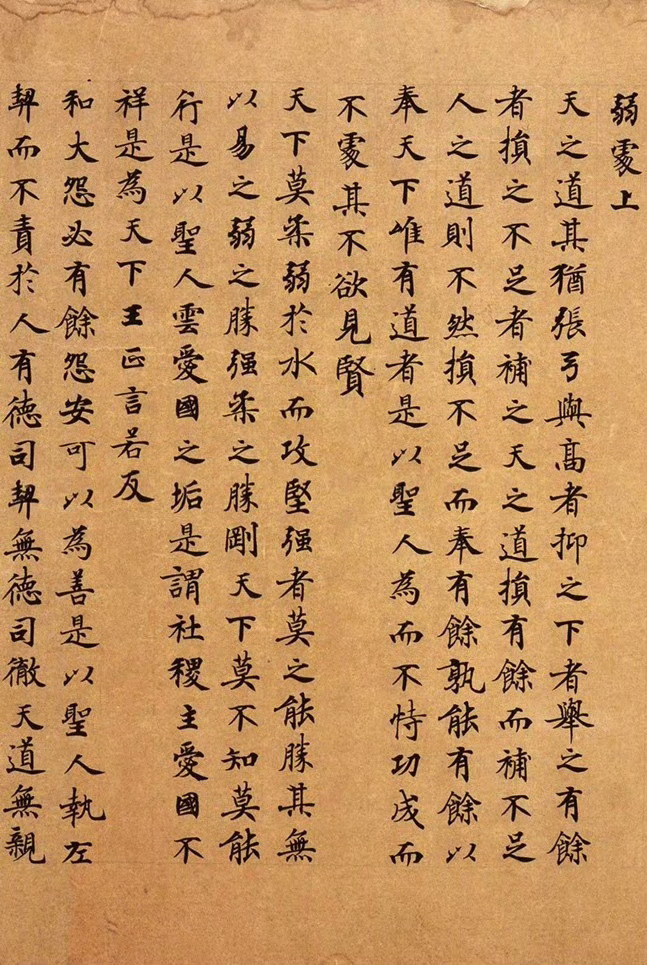 弱處上
天之道其猶張弓與高者抑之下者舉之有餘
者損之不足者補之天之道損有餘而補不足
人之道則不然損不足而奉有餘孰能有餘以
奉天下唯有道者是以聖人為而不恃功成而
不處其不欲見賢
天下莫柔弱於水而攻堅强者莫之能勝其無
以易之弱之勝强柔之勝剛天下莫不知莫能
行是以聖人雲愛國之垢是謂社稷主愛國不
祥是為天下王正言若反
和大怨必有餘怨安可以為善是以聖人執左
契而不責於人有德司契無德司徹天道無親